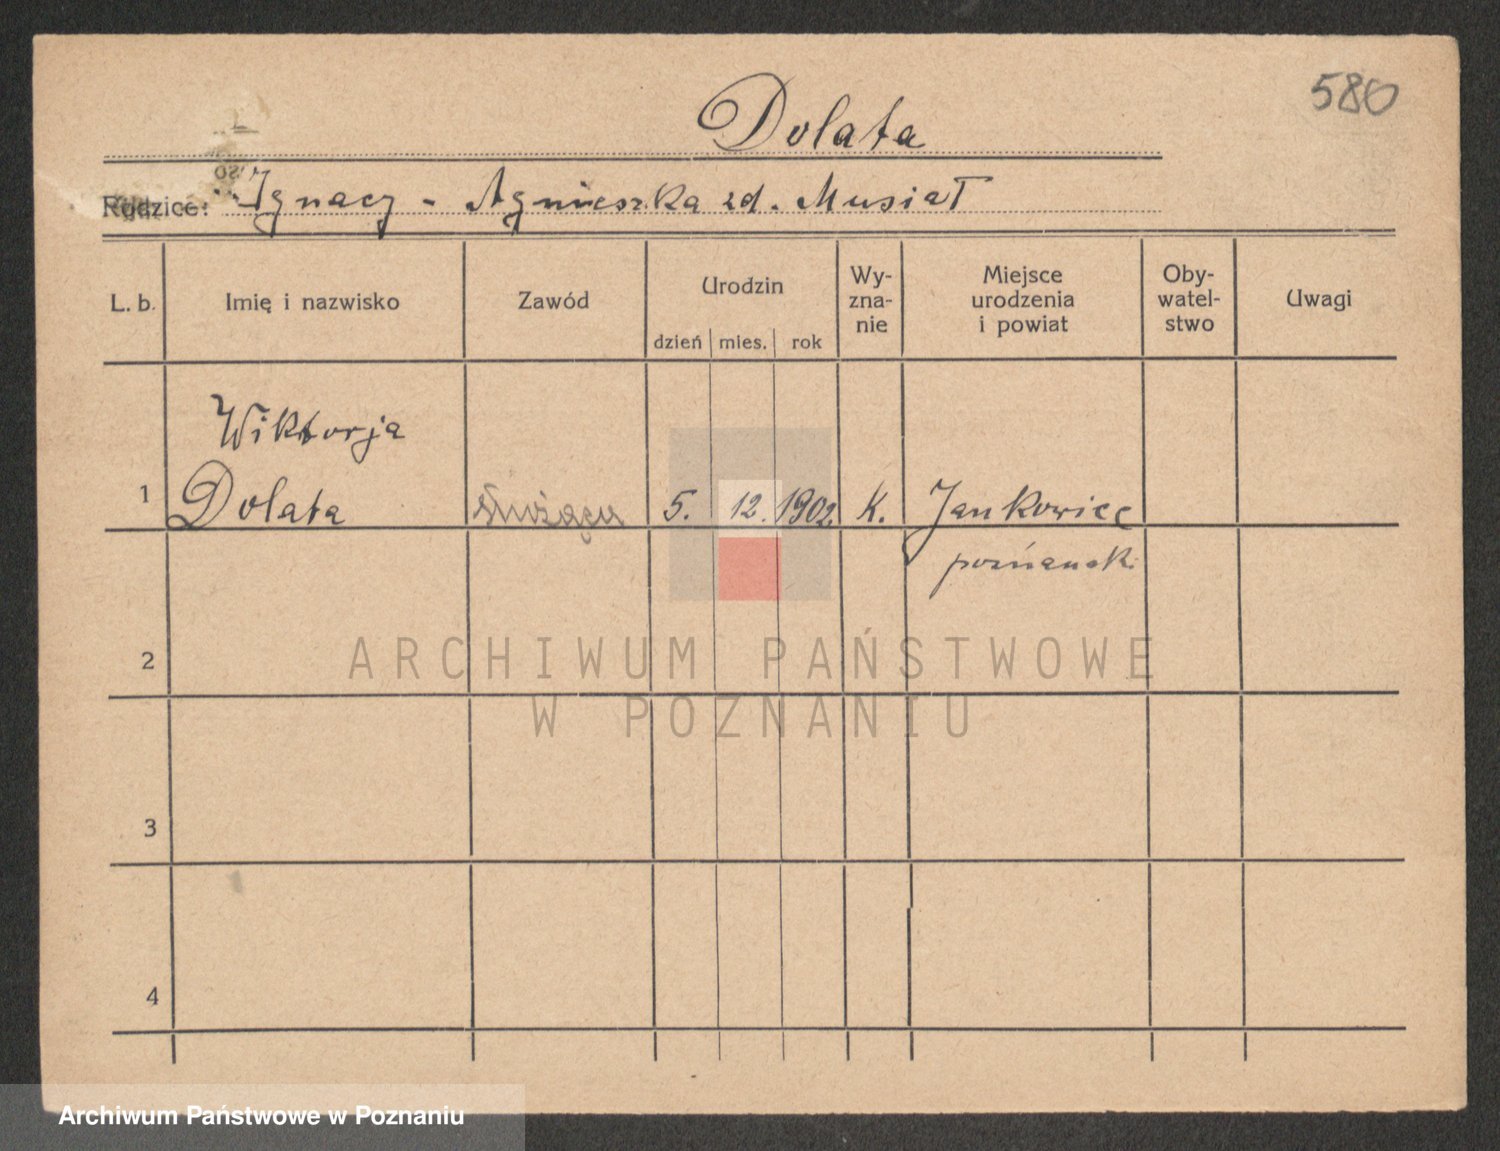 580
Dolata
Rodzice: Ignacy - Agnieszka zd. Musiał
L. b.
Imię i nazwisko
Zawód
Urodzin
dzień mies. rok
Wy-
zna-
nie
Miejsce
urodzenia
i powiat
Oby-
watel-
stwo
Uwagi
Wiktorja
1 Dolata służąca 5. 12. 1902 k. Jankowice
poznańsk.
2
3
4
ARCHIWUM PAŃSTWOWE
W POZNANIU
Archiwum Państwowe w Poznaniu